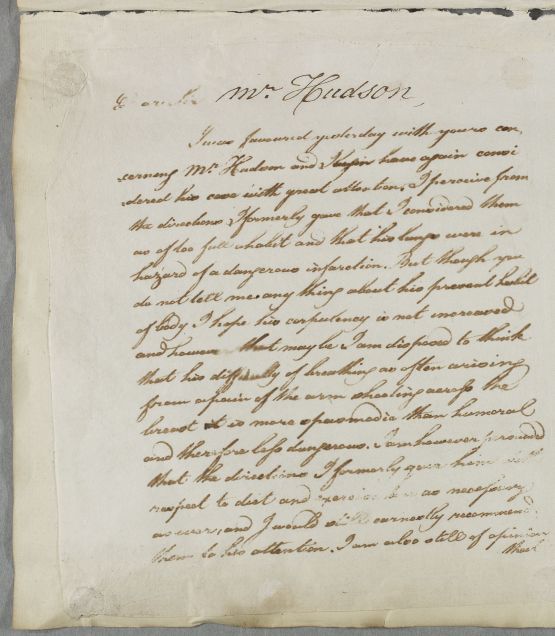 Dear Sir Mr. Hudson,
I was favoured yesterday with yours con
cerning Mr. Hudson and have again consi
dered his case with great attention, I perceive from
the directions I formerly gave that I considered them
as of too full a habit and that his lungs were in
hazard of a dangerous infarction. But though you
do not tell me any thing about his present habit
of body I hope his corpulency is not increased
and however that may be I am disposed to think
that his difficulty of breathing as often arising
from a pain of the arm shooting across the
breast it is more spasmodic than humoral
and therefore less dangerous. I am however persuaded
that the directions I formerly gave him with
respect to diet and exercise are as necessary
as ever, and I would still earnestly recommend
them to his attention. I am also still of opinion
that